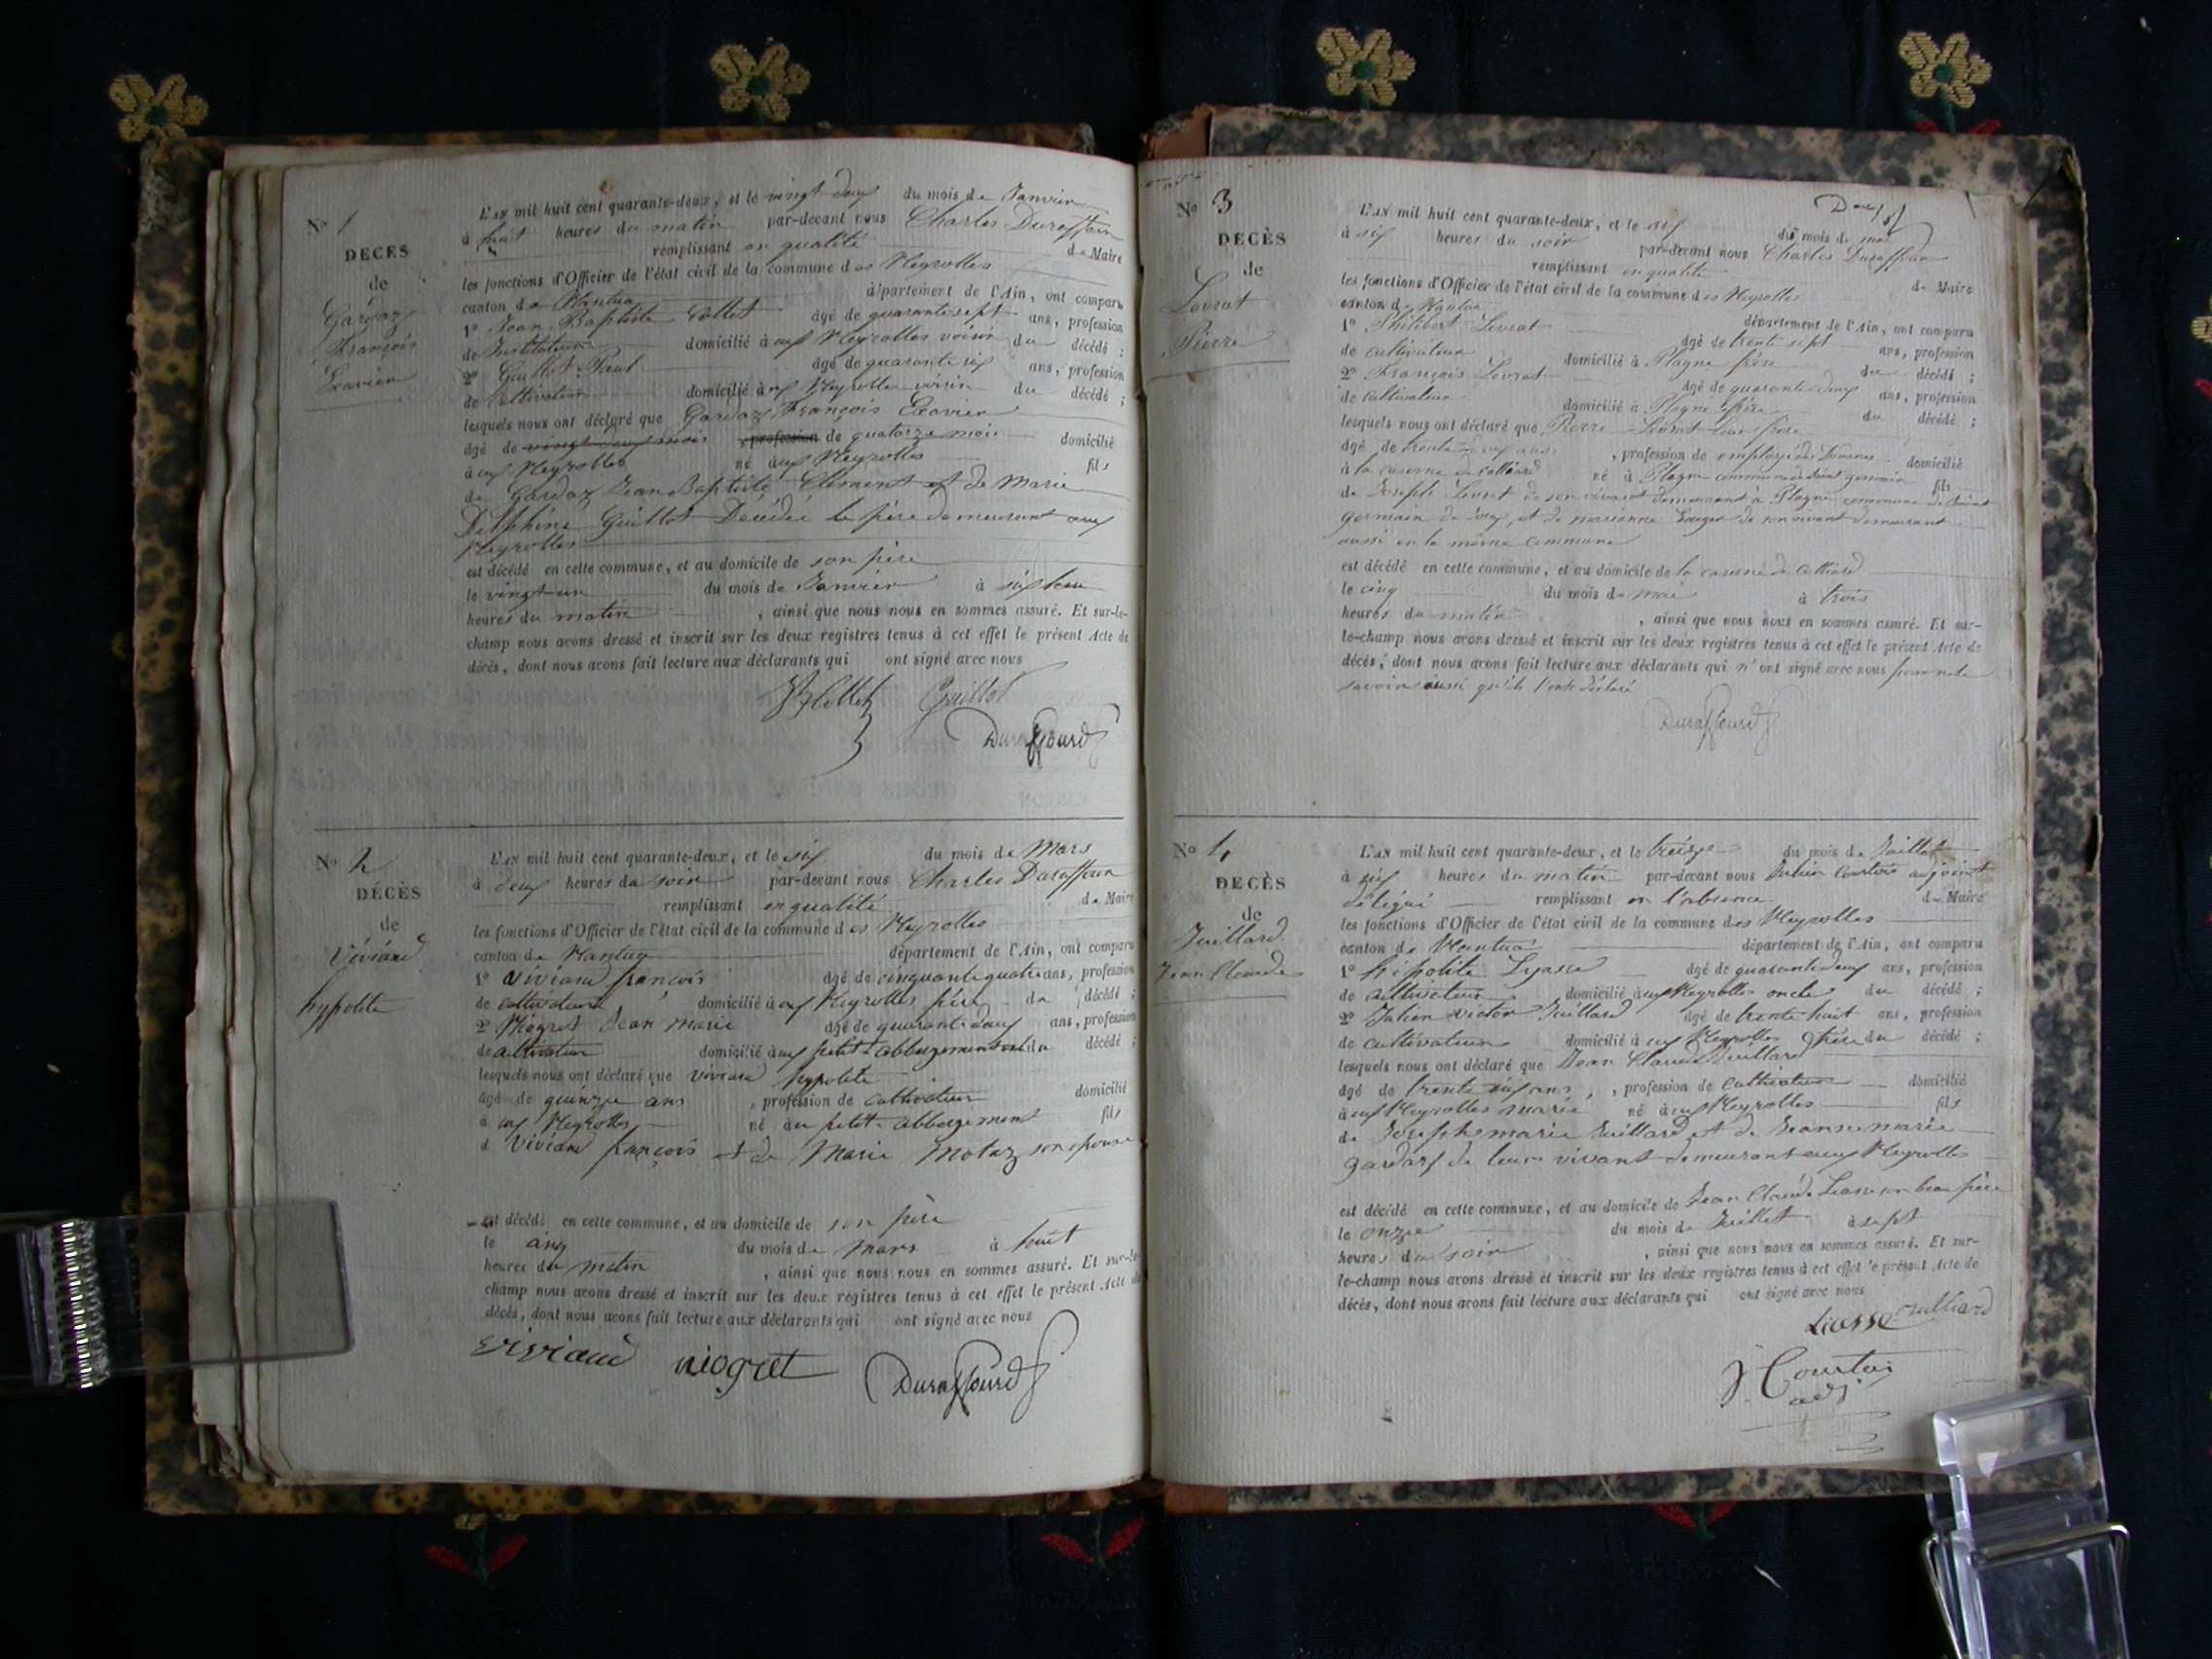 No 1
DÉCÈS
de
Gardaz
François
Xavier
L'an mil huit cent quarante-deux, et le vingt-deux du mois de Janvier
à huit heures du matin par-devant nous Charles Duraffour
remplissant en qualité de Maire
les fonctions d'Officier de l'état civil de la commune des Neyrolles
canton de Nantua département de l'Ain, ont comparu
1o Jean-Baptiste Collet âgé de quarante sept ans, profession
de Instituteur domicilié aux Neyrolles voisin du décédé ;
2o Guillot Paul âgé de quarante six ans, profession
de Cultivateur domicilié aux Neyrolles voisin du décédé ;
lesquels nous ont déclaré que Gardaz François Xavier
âgé de vingt deux mois profession de quatorze mois domicilié
à aux Neyrolles né aux Neyrolles fils
de Gardaz Jean Baptiste Clément et de Marie
Delphine Guillot Décédée le père demeurant aux
Neyrolles
est décédé en cette commune, et au domicile de son père
le vingt-un du mois de Janvier à six
heures du matin , ainsi que nous nous en sommes assuré. Et sur-le-
champ nous avons dressé et inscrit sur les deux registres tenus à cet effet le présent Acte de
décès, dont nous avons fait lecture aux déclarants qui ont signé avec nous
Collet Guillot
Duraffourd
No 2
DÉCÈS
de
Viviand
hypolite
L'an mil huit cent quarante-deux, et le six du mois de Mars
à deux heures du soir par-devant nous Charles Duraffour
remplissant en qualité de Maire
les fonctions d'Officier de l'état civil de la commune des Neyrolles
canton de Nantua département de l'Ain, ont comparu
1o Viviand françois âgé de cinquante quatre ans, profession
de cultivateur domicilié à aux Neyrolles père du décédé ;
2o Niogret Jean Marie âgé de quarante deux ans, profession
de cultivateur domicilié à au petit abbergement du décédé ;
lesquels nous ont déclaré que viviand hypolite
âgé de quinze ans , profession de cultivateur domicilié
à aux Neyrolles né au petit abbergement fils
d viviand françois et de Marie Motaz son épouse
est décédé en cette commune, et au domicile de son père
le cinq du mois de mars à huit
heures du matin , ainsi que nous nous en sommes assuré. Et sur-le-
champ nous avons dressé et inscrit sur les deux registres tenus à cet effet le présent Acte de
décès, dont nous avons fait lecture aux déclarants qui ont signé avec nous
viviand niogret Duraffourd
No 3
DÉCÈS
de
Levrat
Pierre
L'an mil huit cent quarante-deux, et le six du mois de mai
à six heures du soir par-devant nous Charles Duraffour
remplissant en qualité de Maire
les fonctions d'Officier de l'état civil de la commune des Neyrolles
canton de Nantua département de l'Ain, ont comparu
1o Philibert Levrat âgé de trente sept ans, profession
de cultivateur domicilié à Plagne frère du décédé ;
2o François Levrat âgé de quarante deux ans, profession
de cultivateur domicilié à Plagne frère du décédé ;
lesquels nous ont déclaré que Pierre Levrat leur frère
âgé de trente ans , profession de employé des Douanes domicilié
à la caserne de né à Plagne commune de Saint germain fils
de Joseph Levrat de son vivant demeurant à Plagne commune de Saint
germain de Joux, et de marianne de son vivant demeurant
aussi en la même commune
est décédé en cette commune, et au domicile de la caserne de
le cinq du mois de mai à trois
heures du matin , ainsi que nous nous en sommes assuré. Et sur-
le-champ nous avons dressé et inscrit sur les deux registres tenus à cet effet le présent Acte de
décès, dont nous avons fait lecture aux déclarants qui n'ont signé avec nous pour ne le
savoir aussi qu'ils l'ont déclaré
Duraffourd
No 4
DÉCÈS
de
Juillard
Jean Claude
L'an mil huit cent quarante-deux, et le treize du mois de Juillet
à six heures du matin par-devant nous Julien Courtois adjoint
délégué remplissant en l'absence du Maire
les fonctions d'Officier de l'état civil de la commune des Neyrolles
canton de Nantua département de l'Ain, ont comparu
1o hipolite Lyasse âgé de quarante deux ans, profession
de cultivateur domicilié aux Neyrolles oncle du décédé ;
2o Julien victor Juillard âgé de trente huit ans, profession
de cultivateur domicilié à aux Neyrolles frère du décédé ;
lesquels nous ont déclaré que Jean Claude Juillard
âgé de trente six ans , profession de cultivateur domicilié
à aux Neyrolles marié né à aux Neyrolles fils
de Joseph marie Juillard et de Jeanne marie
gardaz de leur vivant demeurant aux Neyrolles
est décédé en cette commune, et au domicile de Jean Claude Liasse son beau frère
le onze du mois de Juillet à sept
heures du soir , ainsi que nous nous en sommes assuré. Et sur-
le-champ nous avons dressé et inscrit sur les deux registres tenus à cet effet le présent Acte de
décès, dont nous avons fait lecture aux déclarants qui ont signé avec nous
Liasse Julliard
J. Courtois
adj.